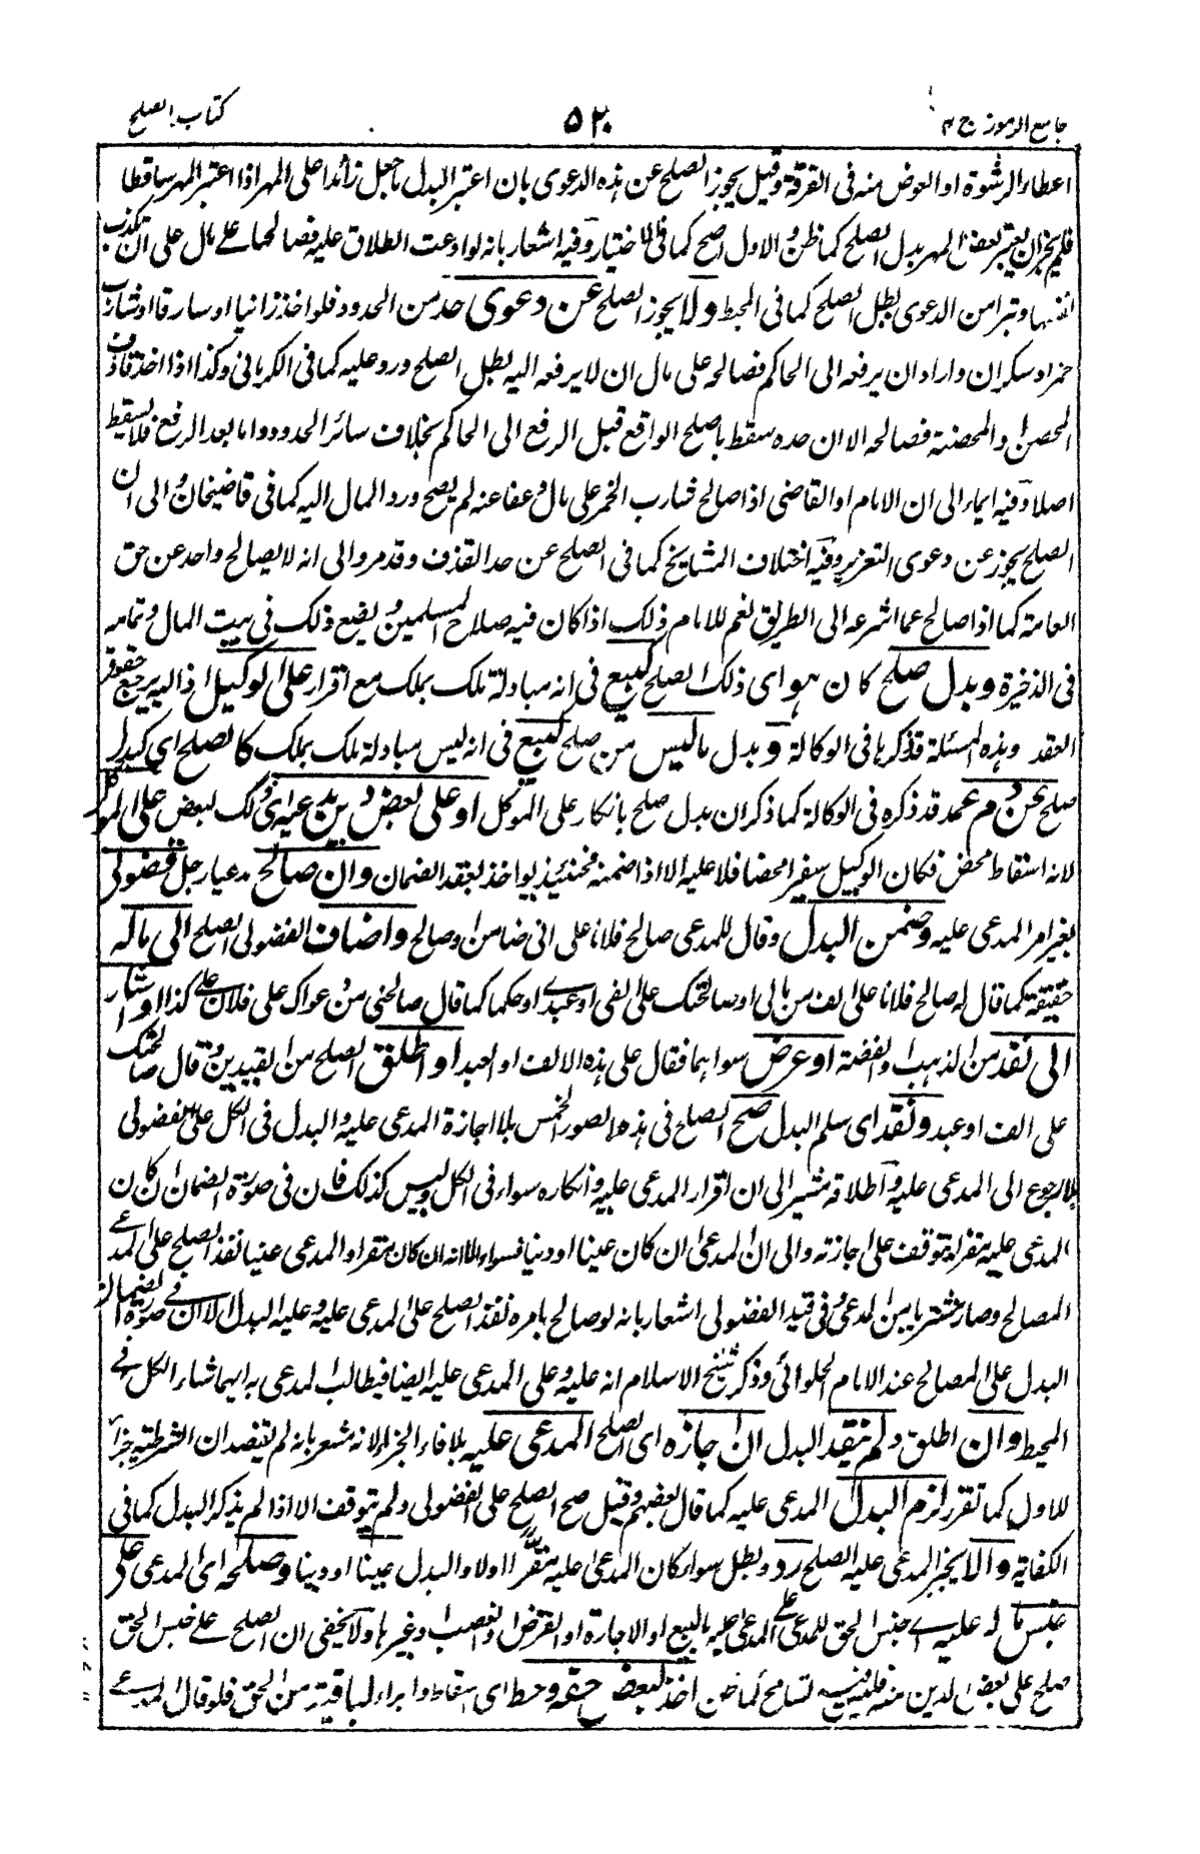 جامع الرموز ج ۳
۵۲۰
كتاب الصلح
اعطاء الرشوة او العوض منه فى الفرقة وقيل يجوز الصلح عن هذه الدعوى بان اعتبر البدل ما جعل زائدا على المهر اذا اعتبر المهر ساقطا
فلم يجز ان يعتبر بعض المهر بدل الصلح كما ظن والاول اصح كما فى الاختيار وفيه اشعار بانه لو ادعت الطلاق عليه فصالحها على مال على ان تكذب
نفسها وتبرا من الدعوى بطل الصلح كما فى المحيط ولا يجوز الصلح عن دعوى حد من الحدود فلو اخذ زانيا او سارقا او شارب
خمر او سكران واراد ان يرفعه الى الحاكم فصالحه على مال ان لا يرفعه اليه بطل الصلح ورد عليه كما فى الكرمانى وكذا اذا اخذ قاذف
المحصن والمحصنة فصالحه الا ان حده سقط بالصلح الواقع قبل الرفع الى الحاكم بخلاف سائر الحدود واما بعد الرفع فلا يسقط
اصلا وفيه ايماء الى ان الامام او القاضى اذا صالح شارب الخمر على مال وعفا عنه لم يصح ورد المال اليه كما فى قاضيخان والى ان
الصلح يجوز عن دعوى التعزير وفيه اختلاف المشايخ كما فى الصلح عن حد القذف وقد مر والى انه لا يصالح واحد عن حق
العامة كما اذا صالح عما اشرعه الى الطريق نعم للامام ذلك اذا كان فيه صلاح المسلمين ويضع ذلك فى بيت المال وتمامه
فى الذخيرة وبدل صلح كان هو اى ذلك الصلح كبيع فى انه مبادلة ملك بملك مع اقرار على الوكيل اذ اليه يرجع حقوق
العقد وهذه المسئلة قد ذكرها فى الوكالة وبدل ما ليس من صلح كبيع فى انه ليس مبادلة ملك بملك كالصلح اى كبدل
صلح عن دم عمد قد ذكره فى الوكالة كما ذكر ان بدل صلح بانكار على الموكل او على بعض دين يدعيه اى ذلك البعض على الموكل
لانه اسقاط محض فكان الوكيل سفيرا محضا فلا عليه الا اذا ضمنه فحينئذ يواخذ لعقد الضمان وان صالح مدعيا رجل فضولى
بغير امر المدعى عليه وضمن البدل وقال للمدعى صالح فلانا على انى ضامن او صالح واضاف الفضولى الصلح الى ماله
حقيقة كما قال له صالح فلانا على الف من مالى او صالحتك على الفى او عبدى او حكما كما قال صالحنى من دعواك على فلان على كذا او اشار
الى نقد من الذهب والفضة او عرض سواهما فقال على هذه الالف او العبد او اطلق الصلح من القيدين وقال صالحتك
على الف او عبد ونقد اى سلم البدل صح الصلح فى هذه الصور الخمس بلا اجازة المدعى عليه والبدل فى الكل على الفضولى
بلا رجوع الى المدعى عليه واطلاقه مشير الى ان اقرار المدعى عليه وانكاره سواء فى الكل وليس كذلك فان فى صورة الضمان ان كان
المدعى عليه مقرا له توقف على اجازته والى ان المدعى ان كان عينا او دينا فسواء الا انه ان كان مقرا والمدعى عينا نفذ الصلح على المدعى
المصالح وصار مشتريا من المدعى وفى قيد الفضولى اشعار بانه لو صالح بامره نفذ الصلح على المدعى عليه وعليه البدل الا ان فى صورة الضمان
البدل على المصالح عند الامام الحلوائى وذكر شيخ الاسلام انه عليه وعلى المدعى عليه ايضا فيطالب المدعى به ايهما شاء الكل فى
المحيط وان اطلق ولم ينقد البدل ان اجازه اى الصلح المدعى عليه بلا فاء الجزاء لانه مشعر بانه لم يقصد ان الشرطية جزاء
للاول كما تقرر لزم البدل المدعى عليه كما قال بعضهم وقيل صح الصلح على الفضولى ولم يتوقف الا اذا لم يذكر البدل كما فى
الكفاية والا يجز المدعى عليه الصلح رد وبطل سواء كان المدعى عليه مقرا اولا والبدل عينا او دينا وصلحه اى المدعى على
جنس ما له عليه اى جنس الحق للمدعى على المدعى عليه بالبيع او الاجارة او القرض او الغصب وغيرها ولا يخفى ان الصلح على جنس الحق
صلح على بعض الدين منه ففيه تسامح كما ظن اخذ لبعض حقه وحط اى اسقاط وابراء لباقيه من الحق فلو قال المدعى